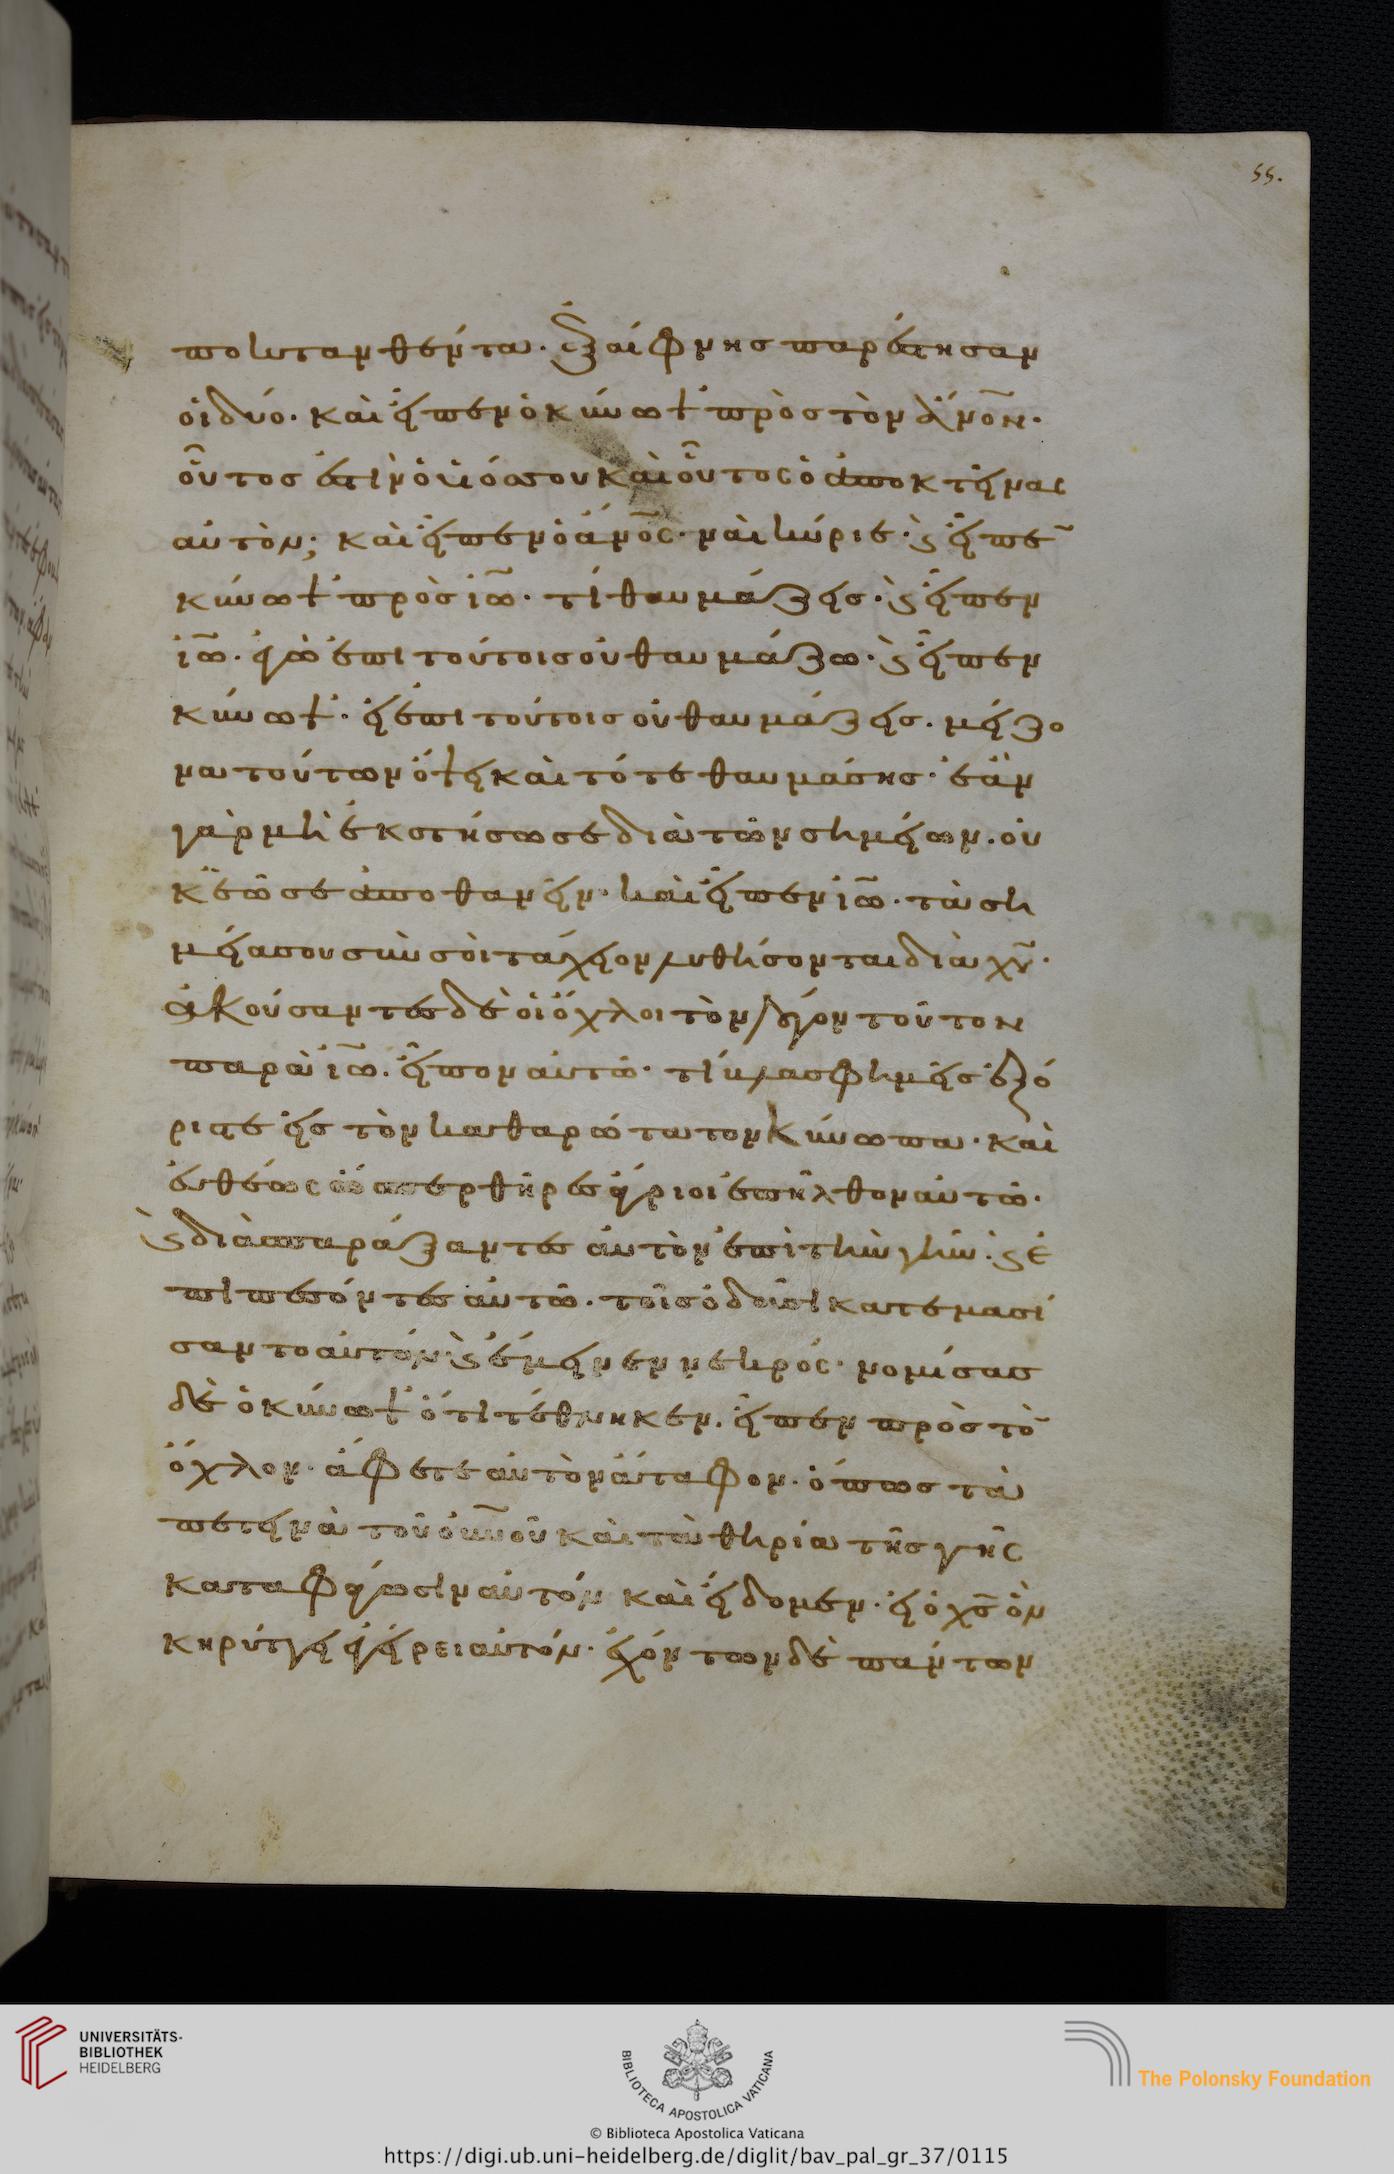 55.
ποκτανθέντα. ἐξαίφνης παρέστησαν
οἱ δύο. καὶ εἶπεν ὁ κύνωψ πρὸς τὸν ἄν̅ο̅ν.
οὗτος ἐστὶν ὁ υἱός σου καὶ οὗτος ὁ ἀποκτείνας
αὐτὸν; καὶ εἶπεν ὁ ἄν̅ο̅ς. ναὶ κύριε. ϛ εἶπε̅
κύνωψ πρὸς ἰω̅. τί θαυμάζεις. ϛ εἶπεν
ἰω̅. ἐγὼ ἐπὶ τούτοις οὐ θαυμάζω. ϛ εἶπεν
κύνωψ. εἰ ἐπὶ τούτοις οὐ θαυμάζεις. μείζο
να τούτων ὄψει καὶ τότε θαυμάσης. ἐὰν
γὰρ μὴ ἐκστήσω σε διὰ τῶν σημείων. οὐ
κ ἐῶ σε ἀποθανεῖν. καὶ εἶπεν ἰω̅. τὰ ση
μεῖα σου σὺν σοὶ τάχειον λυθήσονται διὰ χυ̅.
ἀκούσαντες δὲ οἱ ὄχλοι τὸν λόγον τοῦτον
παρὰ ἰω̅. εἶπον αὐτῶ. τί βλασφημεῖς ἐξό
ριστε εἰς τὸν καθαρώτατον κύνωπα. καὶ
εὐθέως ὥσπερ θῆρες ἄγριοι ἐπῆλθον αὐτῶ.
ϛ διασπαράξαντες αὐτὸν ἐπὶ τὴν γῆν. ϛ ἐ
πιπεσόντες αὐτῶ. τοῖς ὀδοῦσι κατεμασί
σαντο αὐτόν. ϛ ἔμεινεν νεκρός. νομίσας
δὲ ὁ κύνωψ ὅτι τέθνηκεν. εἶπεν πρὸς το̅
ὄχλον. ἄφετε αὐτὸν ἄταφον. ὅπως τὰ
πετεινὰ τοῦ οὐν̅οῦ καὶ τὰ θηρία τῆς γῆς
καταφάγωσιν αὐτόν καὶ εἴδομεν. εἰ ὁ χς̅ ὃν
κηρύττει ἐγείρει αὐτόν. ἐχόντων δὲ πάντων
UNIVERSITÄTS-
BIBLIOTHEK
HEIDELBERG
BIBLIOTECA APOSTOLICA VATICANA
© Biblioteca Apostolica Vaticana
The Polonsky Foundation
https://digi.ub.uni-heidelberg.de/diglit/bav_pal_gr_37/0115